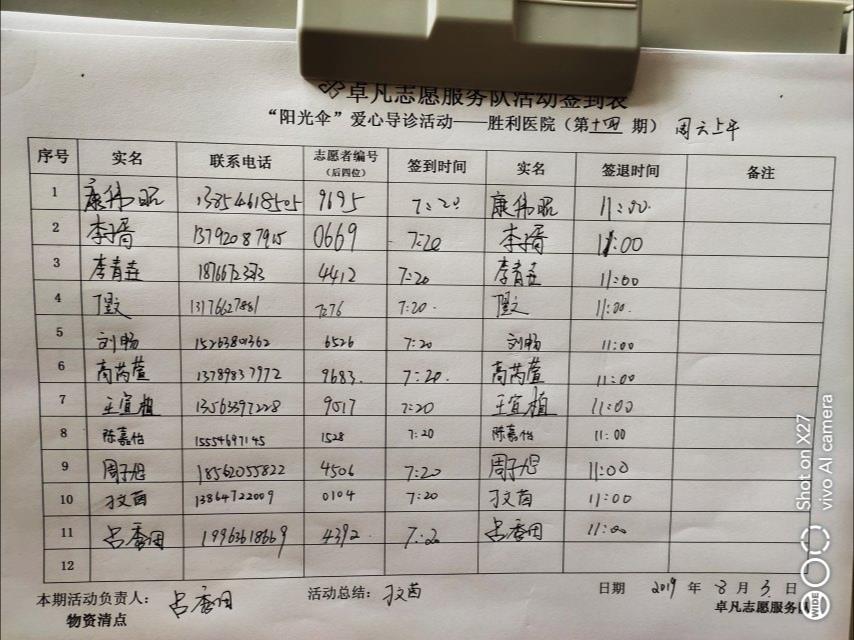 卓凡志愿服务队活动签到表
“阳光伞”爱心导诊活动——胜利医院（第十四期） 周六上午
序号 实名 联系电话 志愿者编号（后四位） 签到时间 实名 签退时间 备注
1 康伟昭 13854618505 9695 7:20 康伟昭 11:00
2 13792087965 0669 7:20 11:00
3 李青垚 4412 7:20 李青垚 11:00
4 13176627881 7276 7:20 11:00
5 刘畅 15263801362 6526 7:20 刘畅 11:00
6 高芮萱 13789837972 9683 7:20 高芮萱 11:00
7 王宜植 13563397228 9017 7:20 王宜植 11:00
8 陈嘉怡 15554697145 1528 7:20 陈嘉怡 11:00
9 周子旭 18562055822 4506 7:20 周子旭 11:00
10 13864722009 0104 7:20 11:00
11 吕 19963618669 4392 7:20 吕 11:00
12
本期活动负责人： 吕 活动总结： 日期 2019 年 8 月 3 日
物资清点 卓凡志愿服务队
Shot on X27
vivo AI camera
WIDE